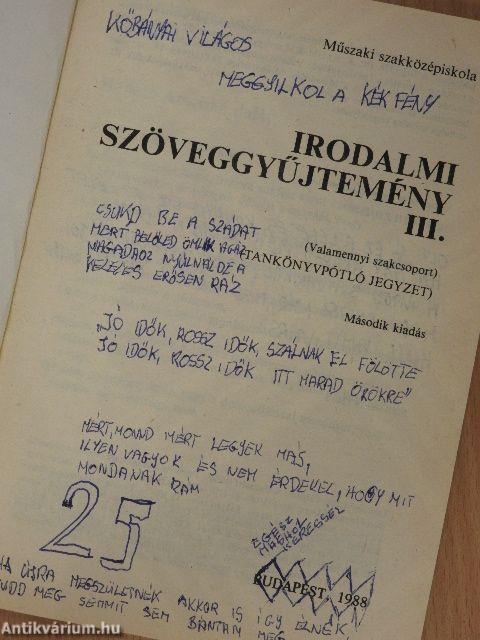 KŐBÁNYAI VILÁGOS
Műszaki szakközépiskola
MEGGYILKOL A KÉK FÉNY
IRODALMI
SZÖVEGGYŰJTEMÉNY
III.
(Valamennyi szakcsoport)
(TANKÖNYVPÓTLÓ JEGYZET)
Második kiadás
CSUKD BE A SZÁDAT
MERT BELŐLED ÖMLIK A GÁZ
MAGADHOZ NYÚLNÁL DE A
VELEVES ERŐSEN RÁZ
"JÓ IDŐK, ROSSZ IDŐK, SZÁLNAK EL FÖLÖTTE
JÓ IDŐK, ROSSZ IDŐK ITT MARAD ÖRÖKRE"
MÉRT, MOND MÉRT LEGYEK MÁS,
ILYEN VAGYOK ÉS NEM ÉRDEKEL, HOGY MIT
MONDANAK RÁM
25
EGÉSZ
MÁSHOL
KERESSEL
BUDAPEST, 1988
HA ÚJRA MEGSZÜLETNÉK AKKOR IS ÍGY ÉLNÉK
TUDD MEG SEMMIT SEM BÁNTAM MEG
Antikvárium.hu